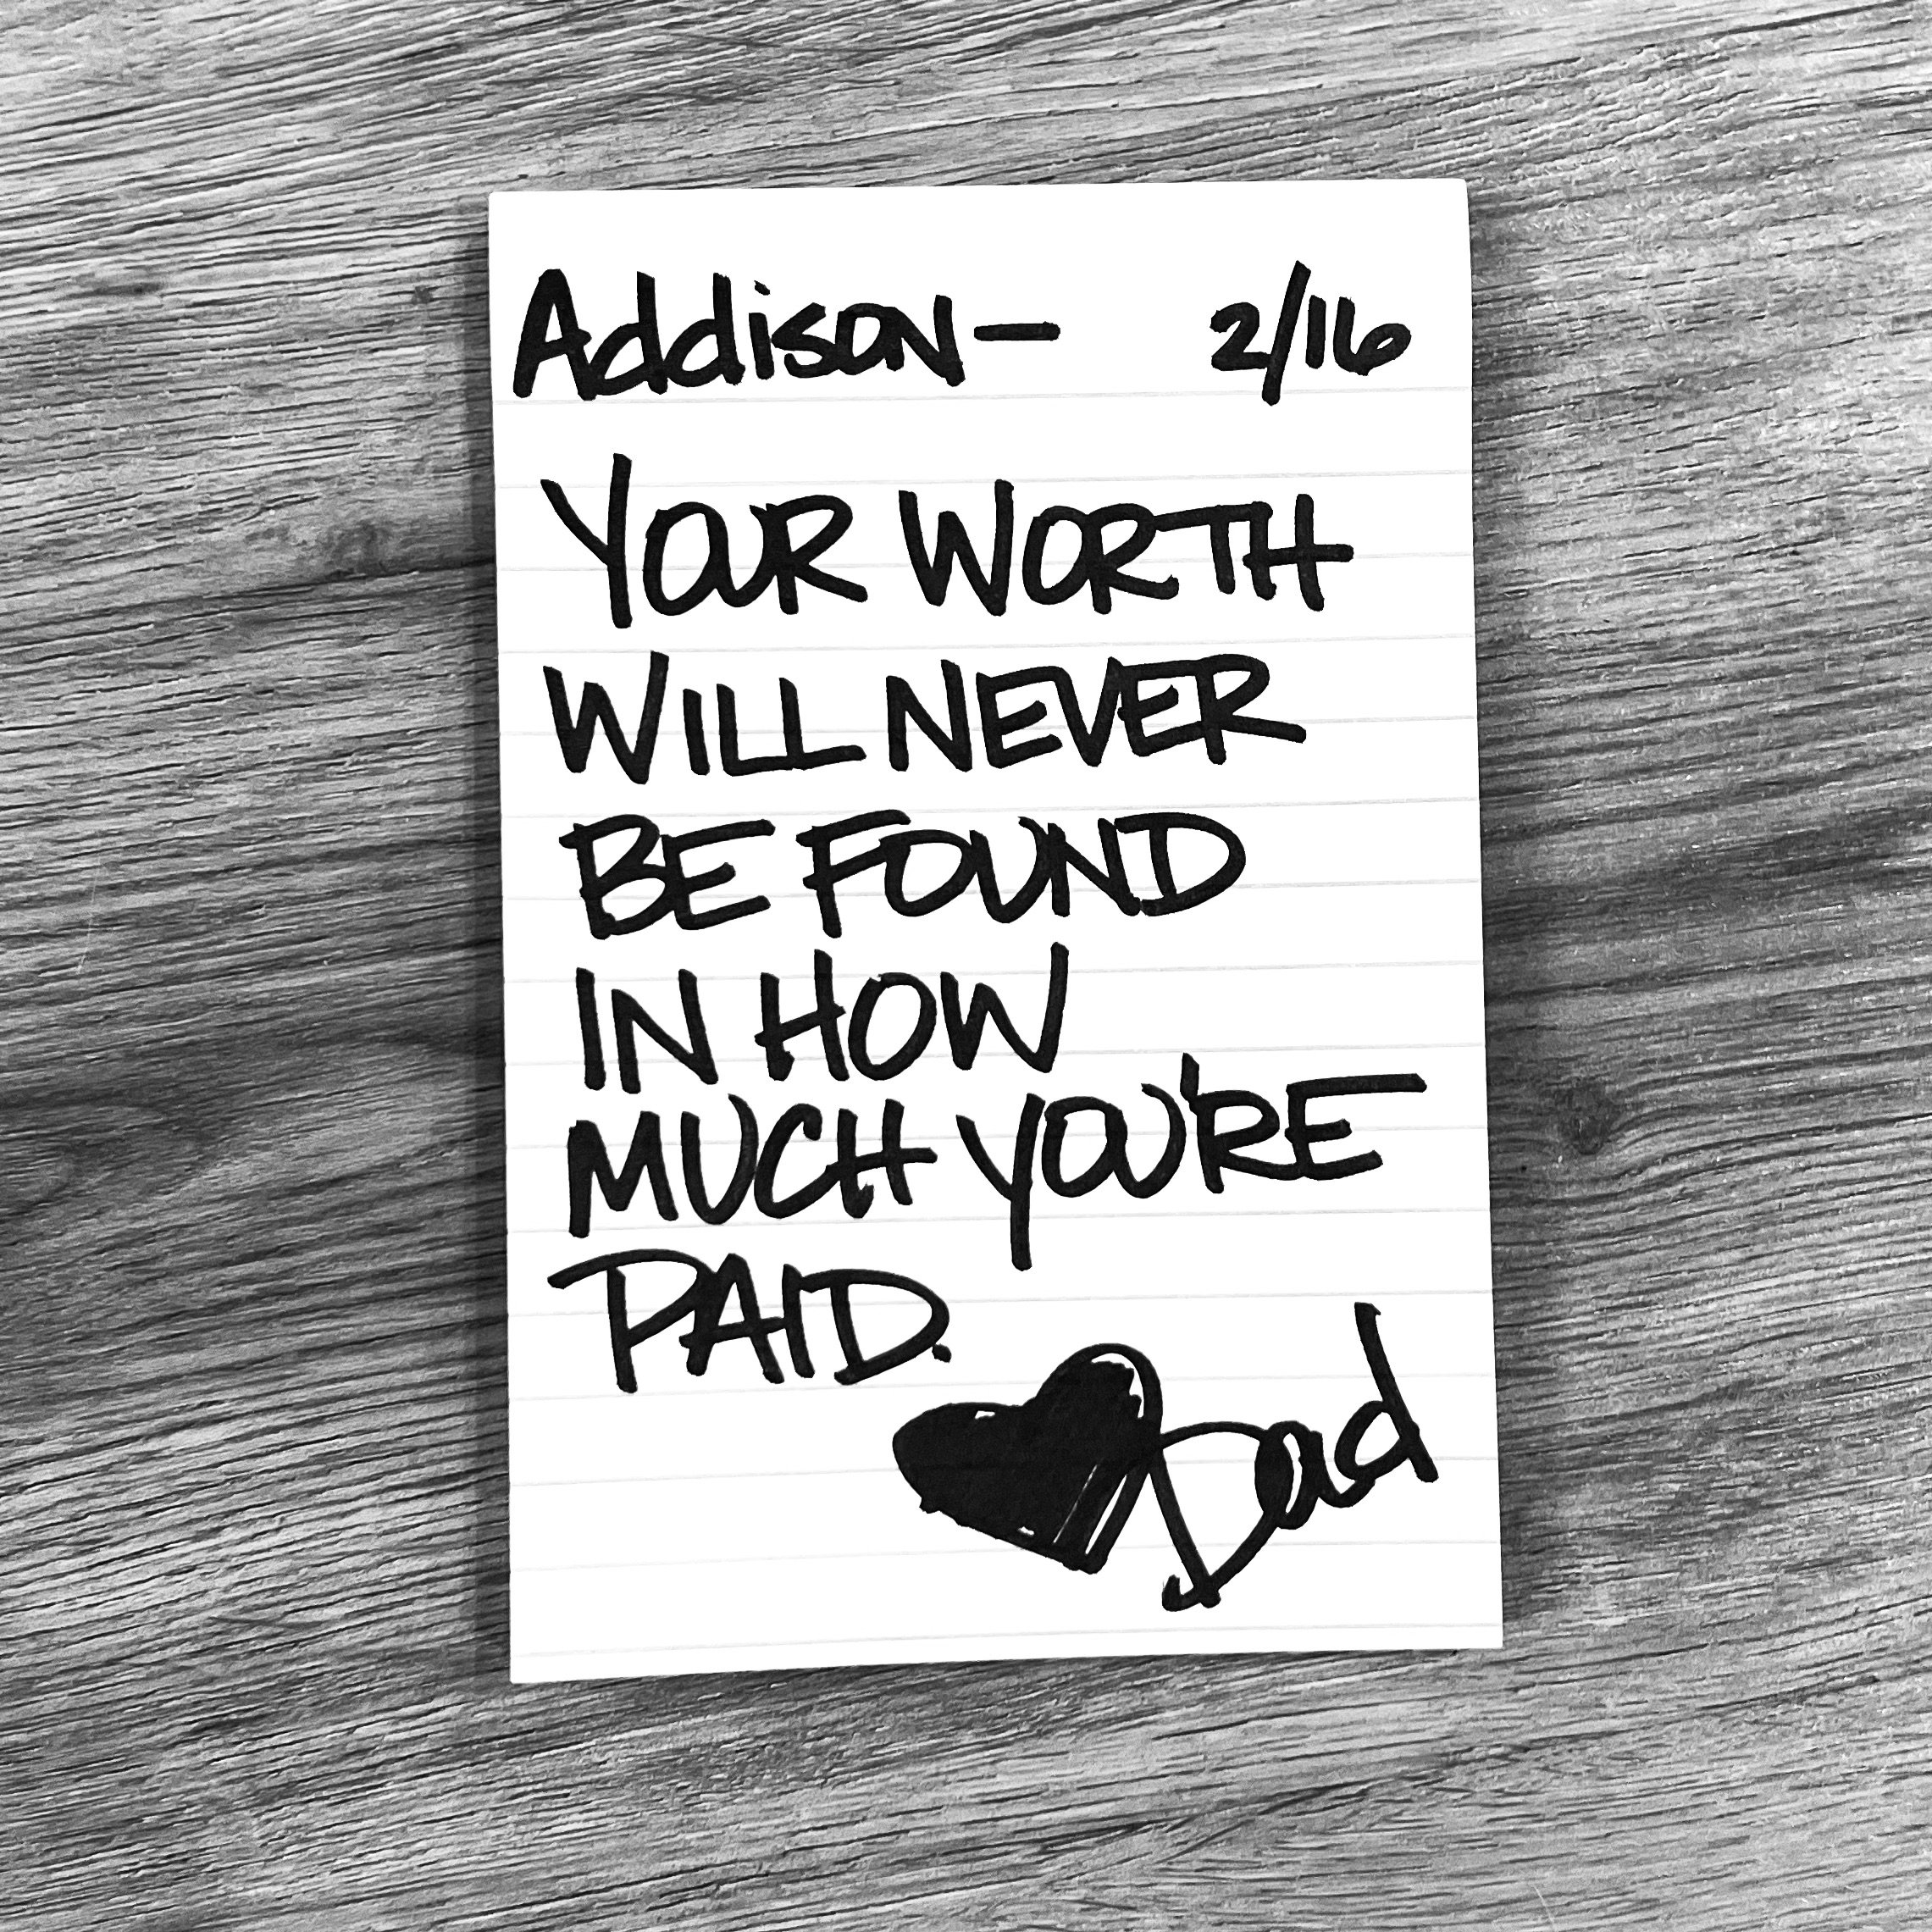 Addison— 2/16
YOUR WORTH
WILL NEVER
BE FOUND
IN HOW
MUCH YOU'RE
PAID.
Dad